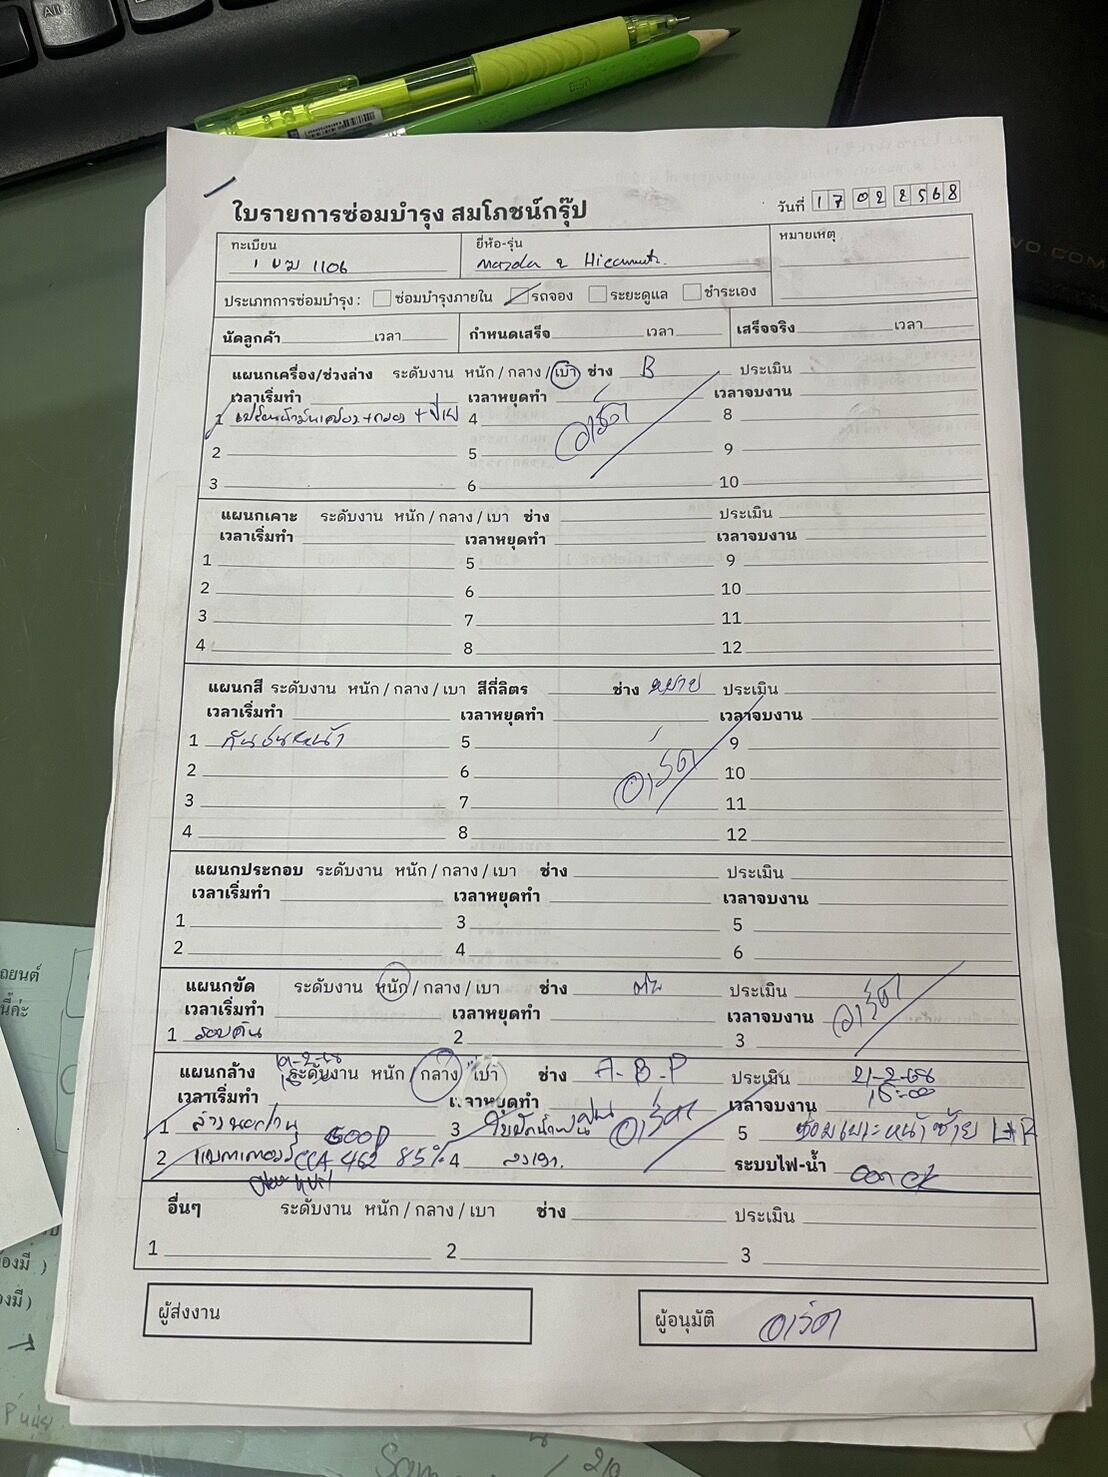 ใบรายการซ่อมบำรุง สมโภชน์กรุ๊ป
วันที่ 17 02 2568
ทะเบียน ยี่ห้อ-รุ่น หมายเหตุ
1106 Mazda 2
ประเภทการซ่อมบำรุง : ซ่อมบำรุงภายใน รถจอง ระยะดูแล ชำระเอง
นัดลูกค้า เวลา กำหนดเสร็จ เวลา เสร็จจริง เวลา
แผนกเครื่อง/ช่วงล่าง ระดับงาน หนัก / กลาง / เบา ช่าง B ประเมิน
เวลาเริ่มทำ เวลาหยุดทำ เวลาจบงาน
1 เปลี่ยนน้ำมันเครื่อง+กรอง 4 8
2 5 9
3 6 10
อาร์ต
แผนกเคาะ ระดับงาน หนัก / กลาง / เบา ช่าง ประเมิน
เวลาเริ่มทำ เวลาหยุดทำ เวลาจบงาน
1 5 9
2 6 10
3 7 11
4 8 12
แผนกสี ระดับงาน หนัก / กลาง / เบา สีกี่ลิตร ช่าง ประเมิน
เวลาเริ่มทำ เวลาหยุดทำ เวลาจบงาน
1 กันชนหน้า 5 9
2 6 10
3 7 11
4 8 12
อาร์ต
แผนกประกอบ ระดับงาน หนัก / กลาง / เบา ช่าง ประเมิน
เวลาเริ่มทำ เวลาหยุดทำ เวลาจบงาน
1 3 5
2 4 6
แผนกขัด ระดับงาน หนัก / กลาง / เบา ช่าง ประเมิน
เวลาเริ่มทำ เวลาหยุดทำ เวลาจบงาน อาร์ต
1 รอบคัน 2 3
แผนกล้าง ระดับงาน หนัก / กลาง / เบา ช่าง A-B-P ประเมิน 21-2-68
เวลาเริ่มทำ เวลาหยุดทำ เวลาจบงาน
1 3 ใบปัดน้ำฝน อาร์ต 5
2 แบตเตอรี่ CCA 462 85% 4 ระบบไฟ-น้ำ
อื่นๆ ระดับงาน หนัก / กลาง / เบา ช่าง ประเมิน
1 2 3
ผู้ส่งงาน ผู้อนุมัติ อาร์ต